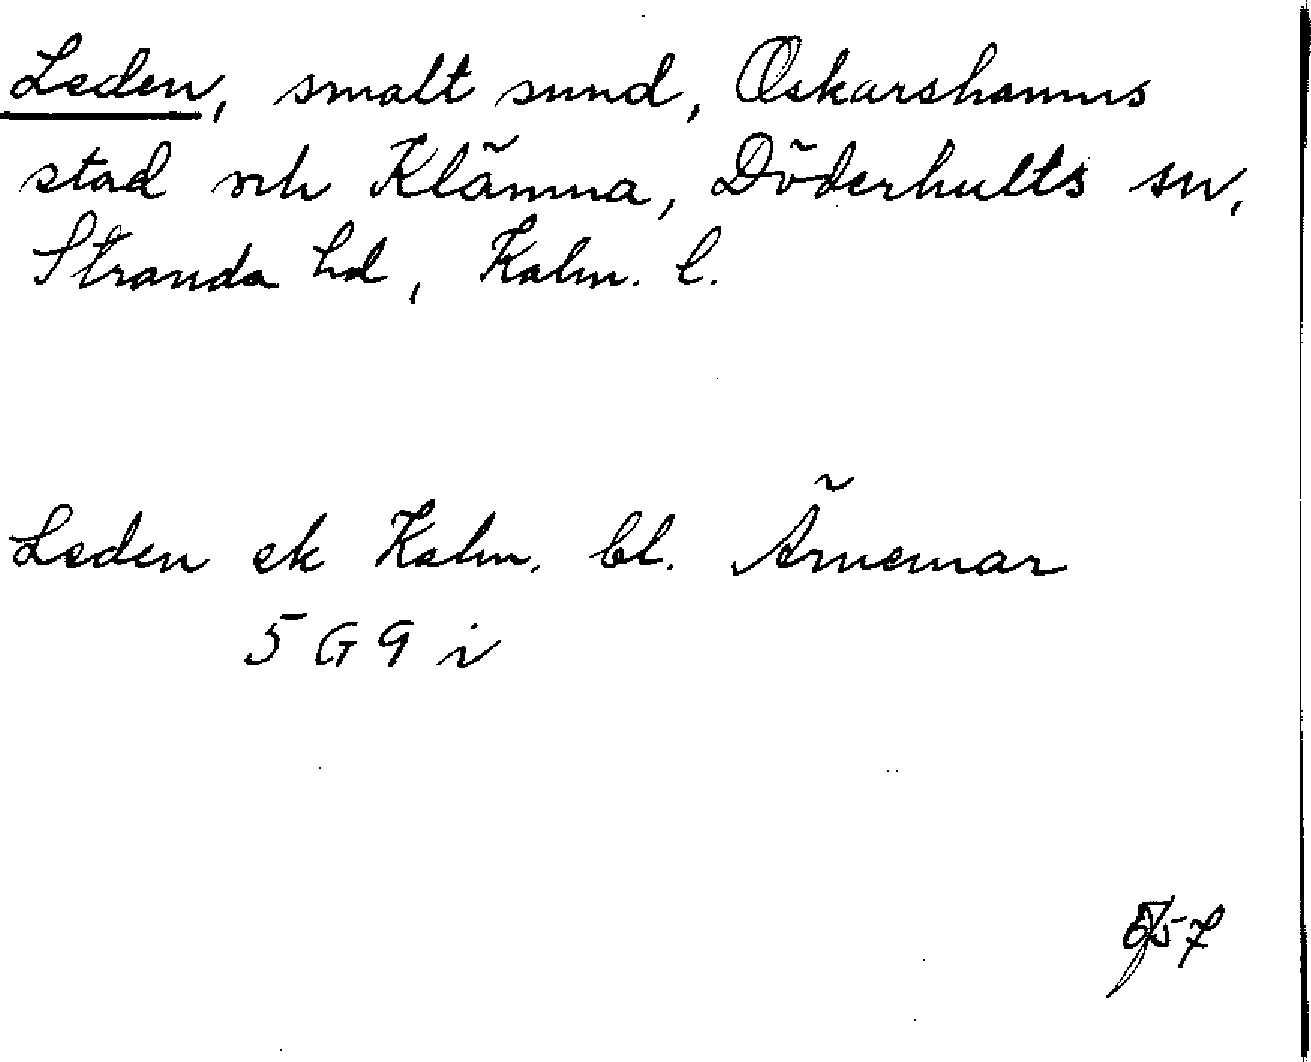 Leden, smalt sund, Oskarshamns
stad och Klämna, Döderhults sn,
Stranda hd, Kalm. l.
Leden ek Kalm. bl. Ärnemar
5 G 9 i